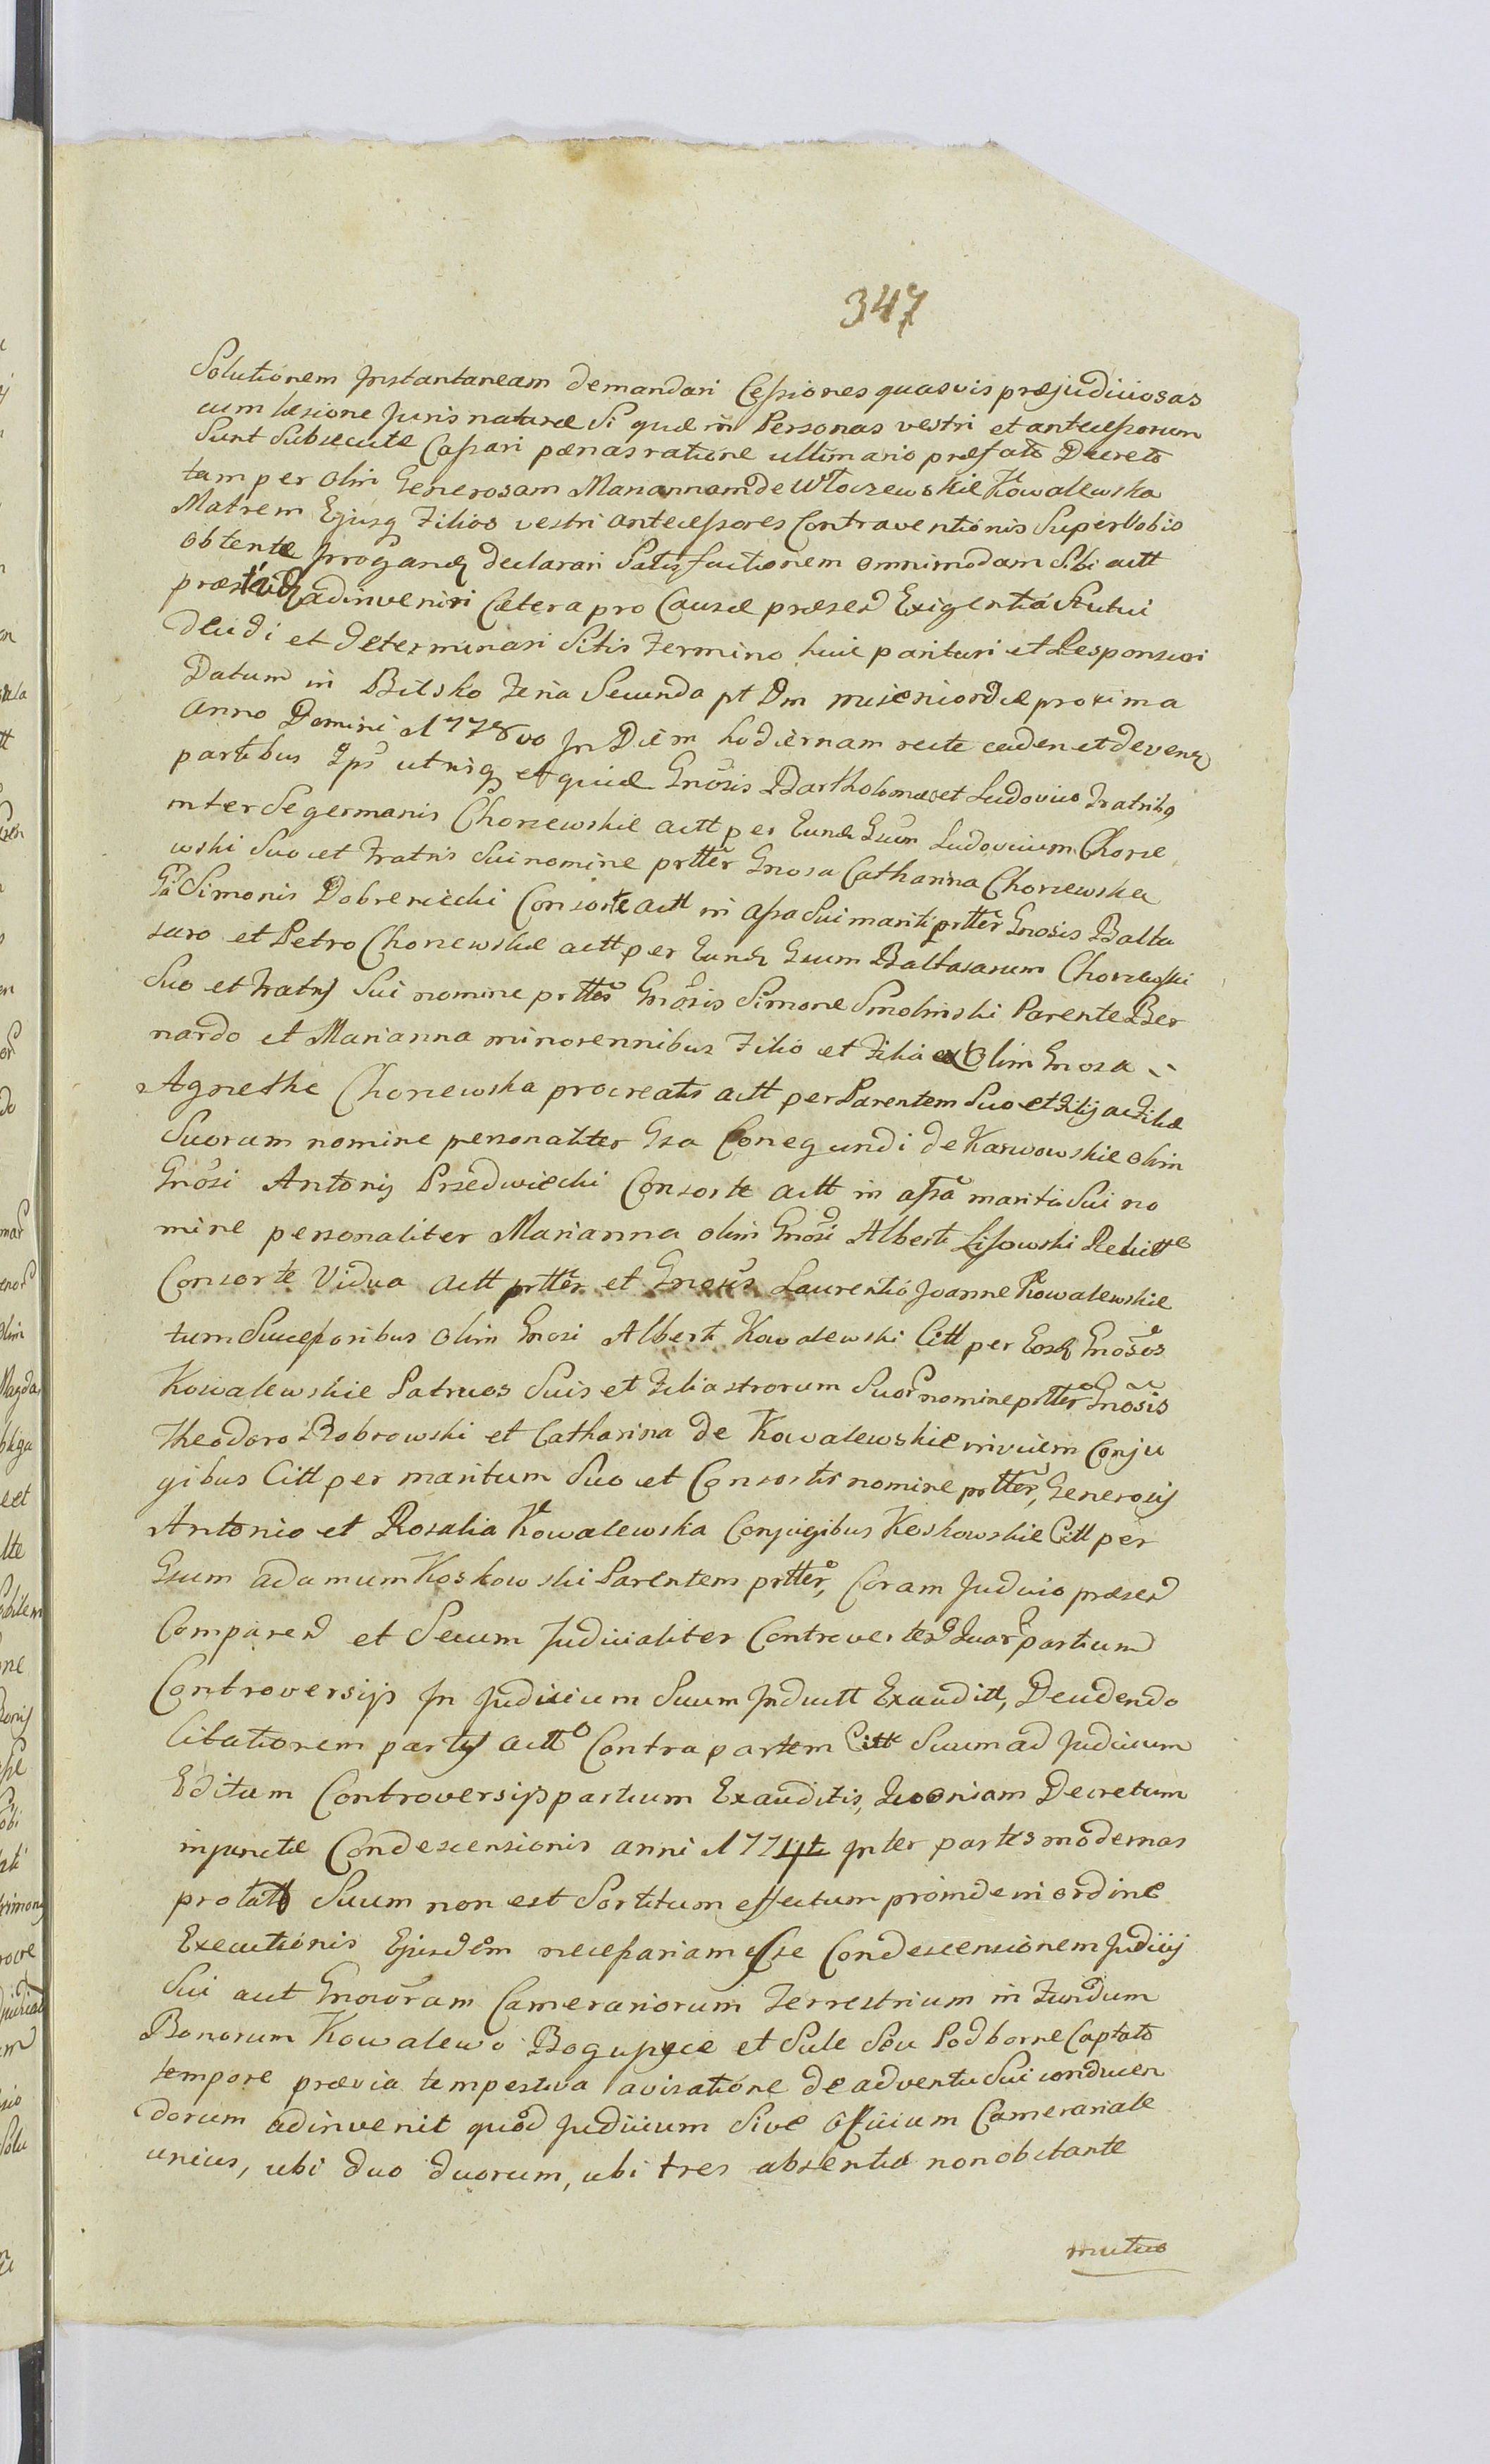 347
Solutionem Instantaneam demandari Cessiones quasvis præjudiciosas
cum læsione Juris naturæ Si quæ in Personas vestri et antecessorum
Sunt Subsecutæ Cassari pœnas ratione ultimario præfato Decreto
tam per olim Generosam Mariannam de Włoczewskie Kowalewska
Matrem Ejusq Filios vestri antecessores Contraventionis Super Vobis
obtentæ irrogand declarari Satisfactionem omnimodam Sibi actt
præstand adinveniri Cætera pro Causæ præsen Exigentia Statui
Decidi et determinari Sitis Termino huic parituri et Responsuri
Datum in Bilsko Feria Secunda pt Dm misericordiæ proxima
anno Domini 1778vo In Diem hodiernam recte caden et deven
partibus Ips utrisq et quidē Gnosis Bartholomæo et Ludovico Fratribq
inter Se germanis Chorzewskie actt per Eund Gsum Ludovicum Chorze
wski Suo et Fratris Sui nomine prtter Gnosa Catharina Chorzewska
Gsi Simonis Dobrenicki Consorte actt in assa Sui mariti prtter Gnosis Balta
saro et Petro Chorzewskie actt per Eund Gsum Baltasarum Chorzewski
Suo et Fratris Sui nomine prtter Gnosis Simone Smolinski Parente Ber
nardo et Marianna minorennibus Filio et Filia ex olim Gnosa
Agnethe Chorzewska procreatis actt per Parentem Suo et Filij ac Filiæ
Suorum nomine personaliter Gsa Conegundi de Karwowskie olim
Gnosi Antonij Przedwiecki Consorte actt in assa mariti Sui no
mine personaliter Marianna olim Gnosi Alberti Lissowski Relicta
Consorte Vidua actt prtter et Gnosis Laurentio Joanne Kowalewskie
tum Successoribus olim Gnosi Alberti Kowalewski Citt per Eosd Gnosos
Kowalewskie Patruos Suis et Filiastrorum Suor nomine prtter Gnosis
Theodoro Bobrowski et Catharina de Kowalewskie invicem Conju
gibus Citt per maritum Suo et Consortis nomine prtter, Generosis
Antonio et Rosalia Kowalewska Conjugibus Koskowskie Citt per
Gsum adamum Koskowski Parentem prtter, Coram Judicio præsen
Comparen et Secum Judicialiter Controverten Quar partium
Controversijs In Judicium Suum Inductt Exauditt, Decidendo
Citationem partis actt Contra partem Citt Suum ad Judicium
Editam Controversijs partium Exauditis, Quoniam Decretum
injunctæ Condescensionis anni 1774ti Inter partes modernas
prolatt Suum non est Sortitum effectum proinde in ordine
Executionis Ejusdem necessariam esse Condescensionem Judicij
Sui aut Gnosorum Camerariorum Terrestrium in Fundum
Bonorum Kowalewo Bogupycie et Sule Seu Podborne Captato
tempore prævia tempestiva avisatione de adventu Sui conducen
dorum adinvenit quod Judicium Sive officium Camerariale
unius, ubi duo duorum, ubi tres absentia non obstante
mutuo